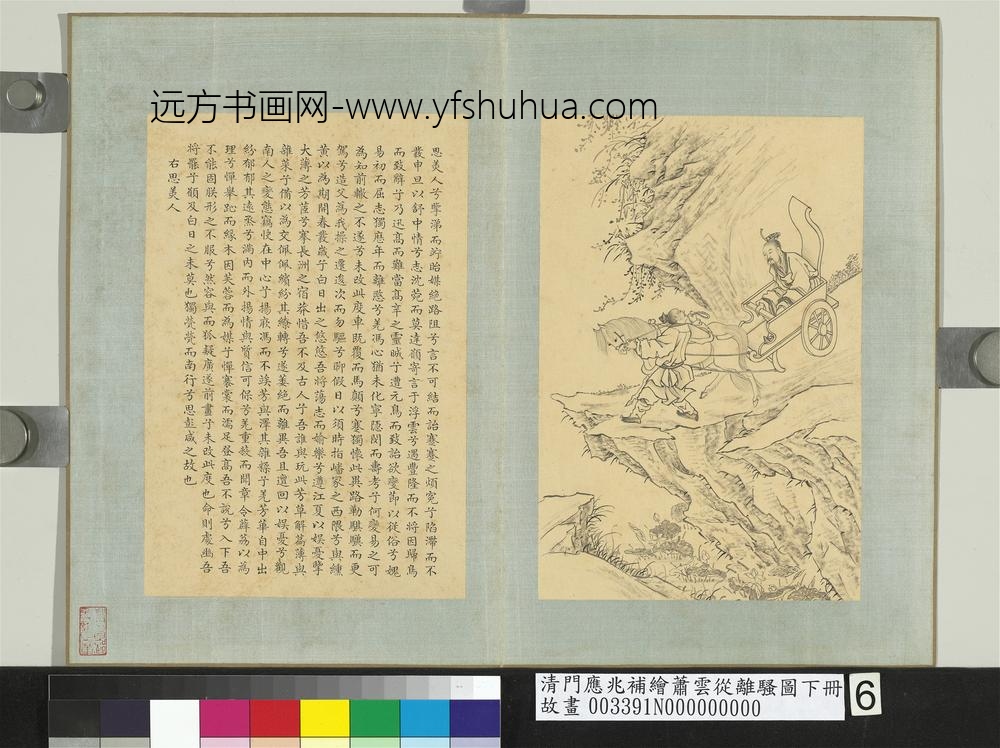 远方书画网-www.yfshuhua.com
思美人兮擥涕而竚眙媒絶路阻兮言不可結而詒蹇蹇之煩冤兮陷滯而不
發申旦以舒中情兮志沈菀而莫達願寄言于浮雲兮遇豐隆而不將因歸鳥
而致辭兮乃迅高而難當高辛之靈晠兮遭元鳥而致詒欲變節以從俗兮媿
易初而屈志獨歷年而離愍兮羌馮心猶未化寧隱閔而壽考兮何變易之可
為知前轍之不遂兮未改此度車既覆而馬顛兮蹇獨懷此異路勒騏驥而更
駕兮造父為我操之遷逡次而勿驅兮聊假日以須時指嶓冢之西隈兮與纁
黃以為期開春發歲兮白日出之悠悠吾將蕩志而愉樂兮遵江夏以娛憂擥
大薄之芳茝兮搴長洲之宿莽惜吾不及古人兮吾誰與玩此芳草解萹薄與
雜菜兮備以為交佩佩繽紛其繚轉兮遂萎絶而離異吾且儃回以娛憂兮觀
南人之變態竊快在中心兮揚厥馮而不竢芳與澤其雜糅兮羌芳華自中出
紛郁郁其遠烝兮滿內而外揚情與質信可保兮羌重蔽而聞章令薜荔以為
理兮憚舉趾而緣木因芙蓉而為媒兮憚褰裳而濡足登高吾不說兮入下吾
不能固朕形之不服兮然容與而狐疑廣遂前畫兮未改此度也命則處幽吾
將罷兮願及白日之未莫也獨煢煢而南行兮思彭咸之故也
右思美人
清門應兆補繪蕭雲從離騷圖下冊
故畫 003391N000000000
6